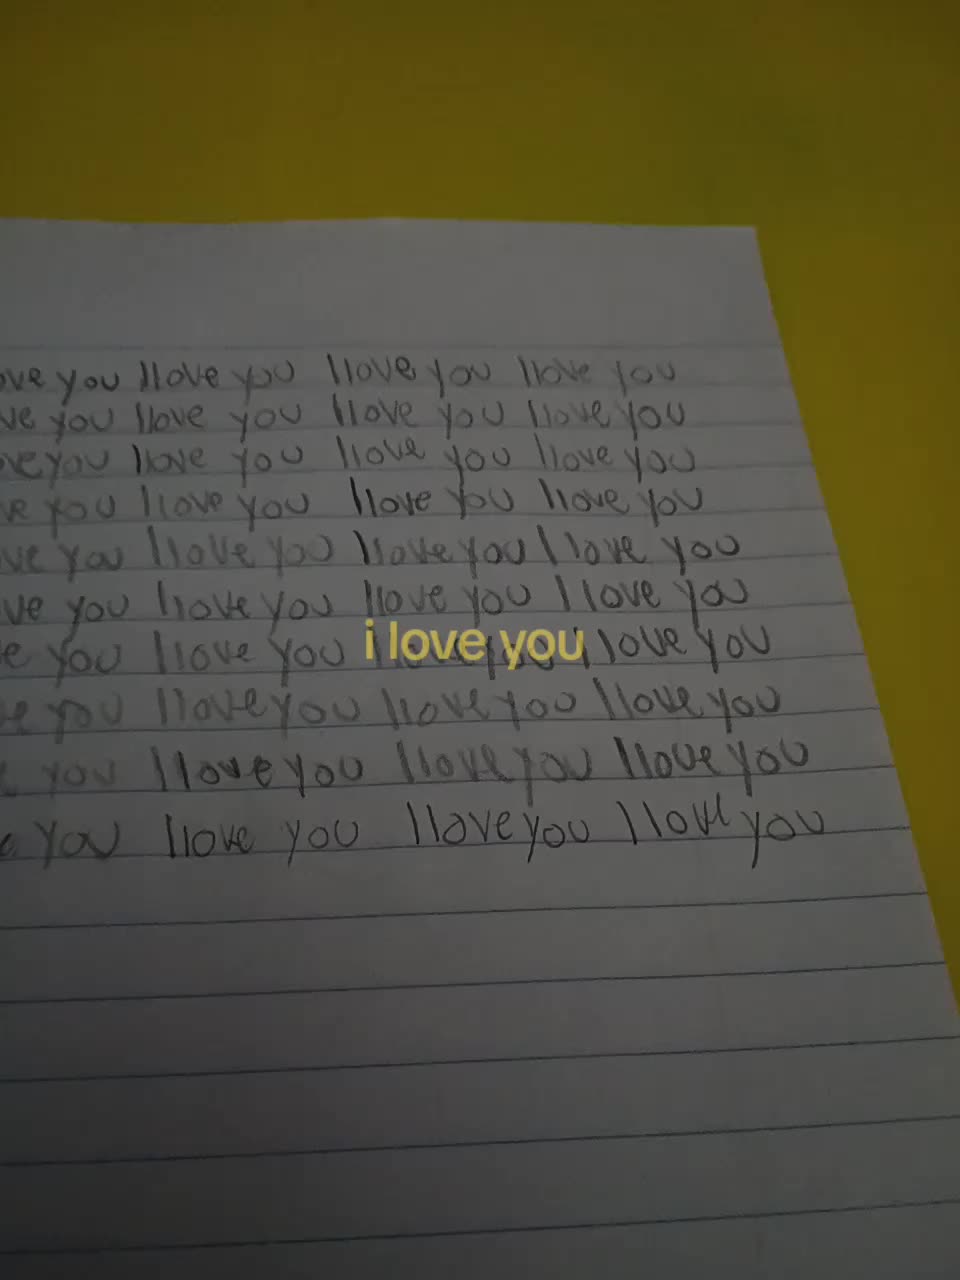 ove you I love you I love you I love you
ve you I love you I love you I love you
ove you I love you I love you I love you
ve you I love you I love you I love you
ove you I love you I love you I love you
ve you I love you I love you I love you
e you I love you I love you I love you
i love you
ve you I love you I love you I love you
e you I love you I love you I love you
e you I love you I love you I love you